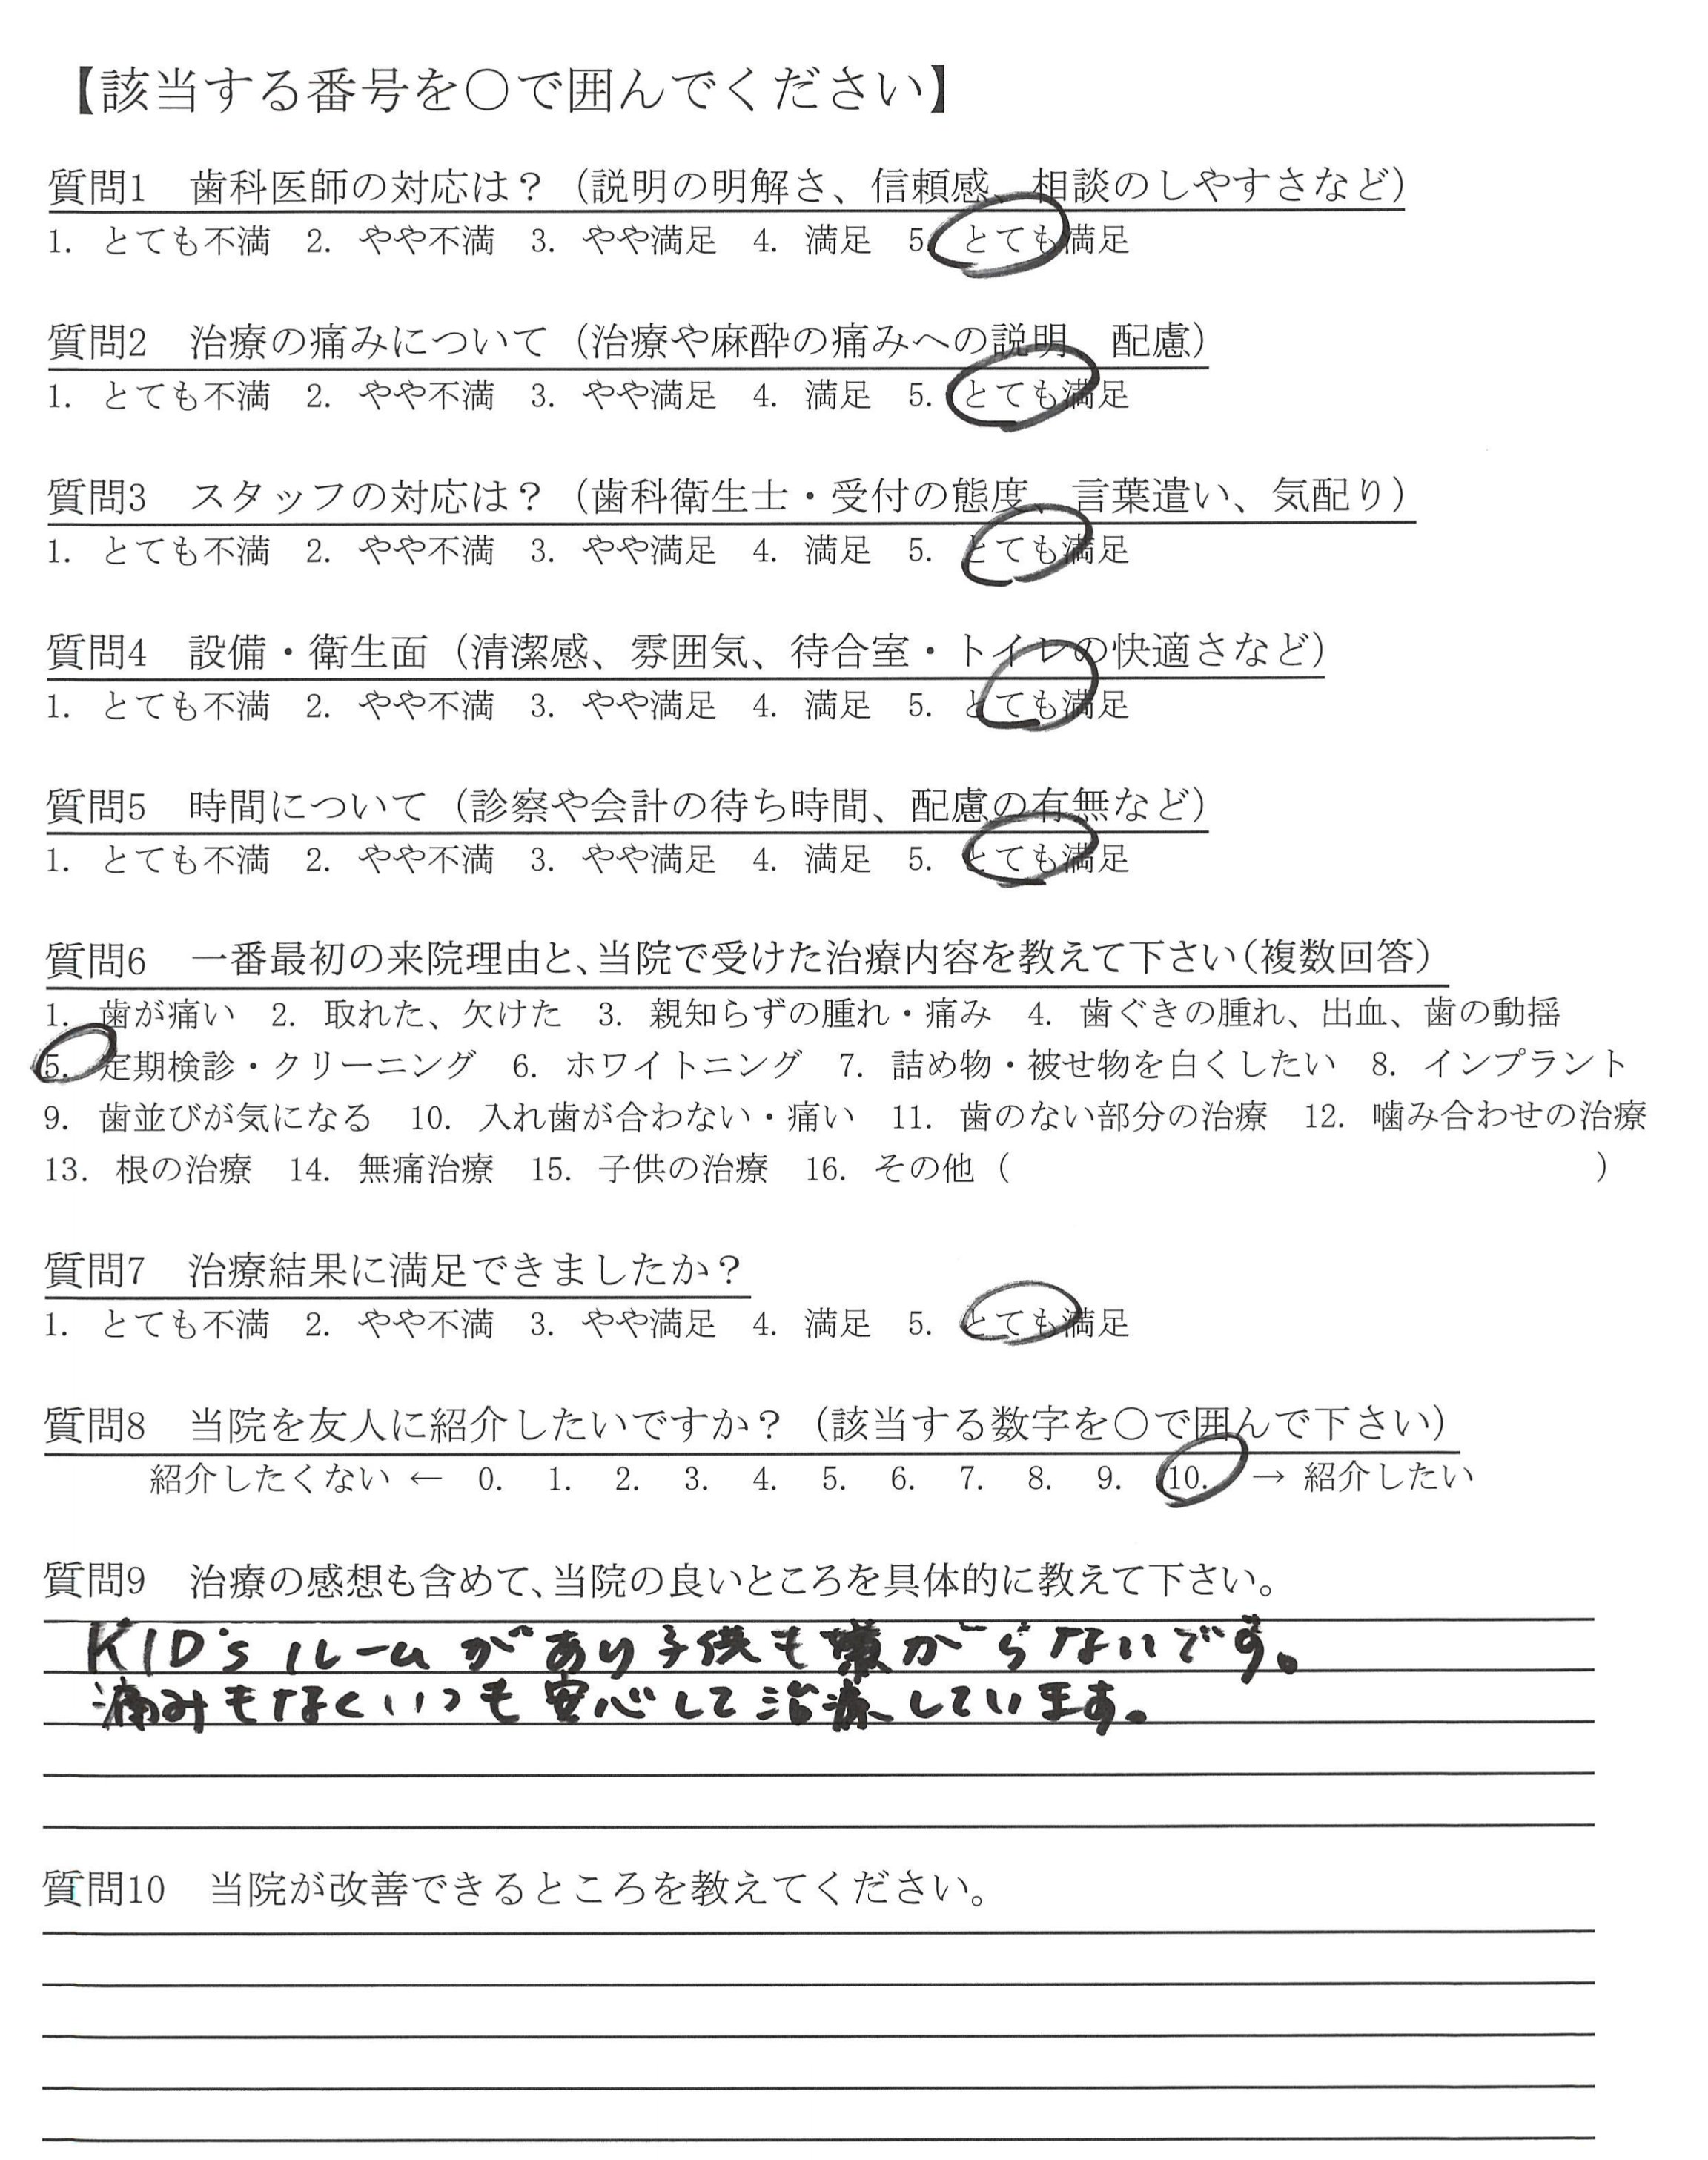 【該当する番号を〇で囲んでください】
質問1　歯科医師の対応は？（説明の明解さ、信頼感、相談のしやすさなど）
1. とても不満　2. やや不満　3. やや満足　4. 満足　5. とても満足
質問2　治療の痛みについて（治療や麻酔の痛みへの説明　配慮）
1. とても不満　2. やや不満　3. やや満足　4. 満足　5. とても満足
質問3　スタッフの対応は？（歯科衛生士・受付の態度、言葉遣い、気配り）
1. とても不満　2. やや不満　3. やや満足　4. 満足　5. とても満足
質問4　設備・衛生面（清潔感、雰囲気、待合室・トイレの快適さなど）
1. とても不満　2. やや不満　3. やや満足　4. 満足　5. とても満足
質問5　時間について（診察や会計の待ち時間、配慮の有無など）
1. とても不満　2. やや不満　3. やや満足　4. 満足　5. とても満足
質問6　一番最初の来院理由と、当院で受けた治療内容を教えて下さい（複数回答）
1. 歯が痛い　2. 取れた、欠けた　3. 親知らずの腫れ・痛み　4. 歯ぐきの腫れ、出血、歯の動揺
5. 定期検診・クリーニング　6. ホワイトニング　7. 詰め物・被せ物を白くしたい　8. インプラント
9. 歯並びが気になる　10. 入れ歯が合わない・痛い　11. 歯のない部分の治療　12. 噛み合わせの治療
13. 根の治療　14. 無痛治療　15. 子供の治療　16. その他（　　　　　　　　　　　　　　　　　）
質問7　治療結果に満足できましたか？
1. とても不満　2. やや不満　3. やや満足　4. 満足　5. とても満足
質問8　当院を友人に紹介したいですか？（該当する数字を〇で囲んで下さい）
紹介したくない ← 0. 1. 2. 3. 4. 5. 6. 7. 8. 9. 10. → 紹介したい
質問9　治療の感想も含めて、当院の良いところを具体的に教えて下さい。
KID's ルームがあり子供も嫌がらないです。
痛みもなくいつも安心して治療しています。
質問10　当院が改善できるところを教えてください。